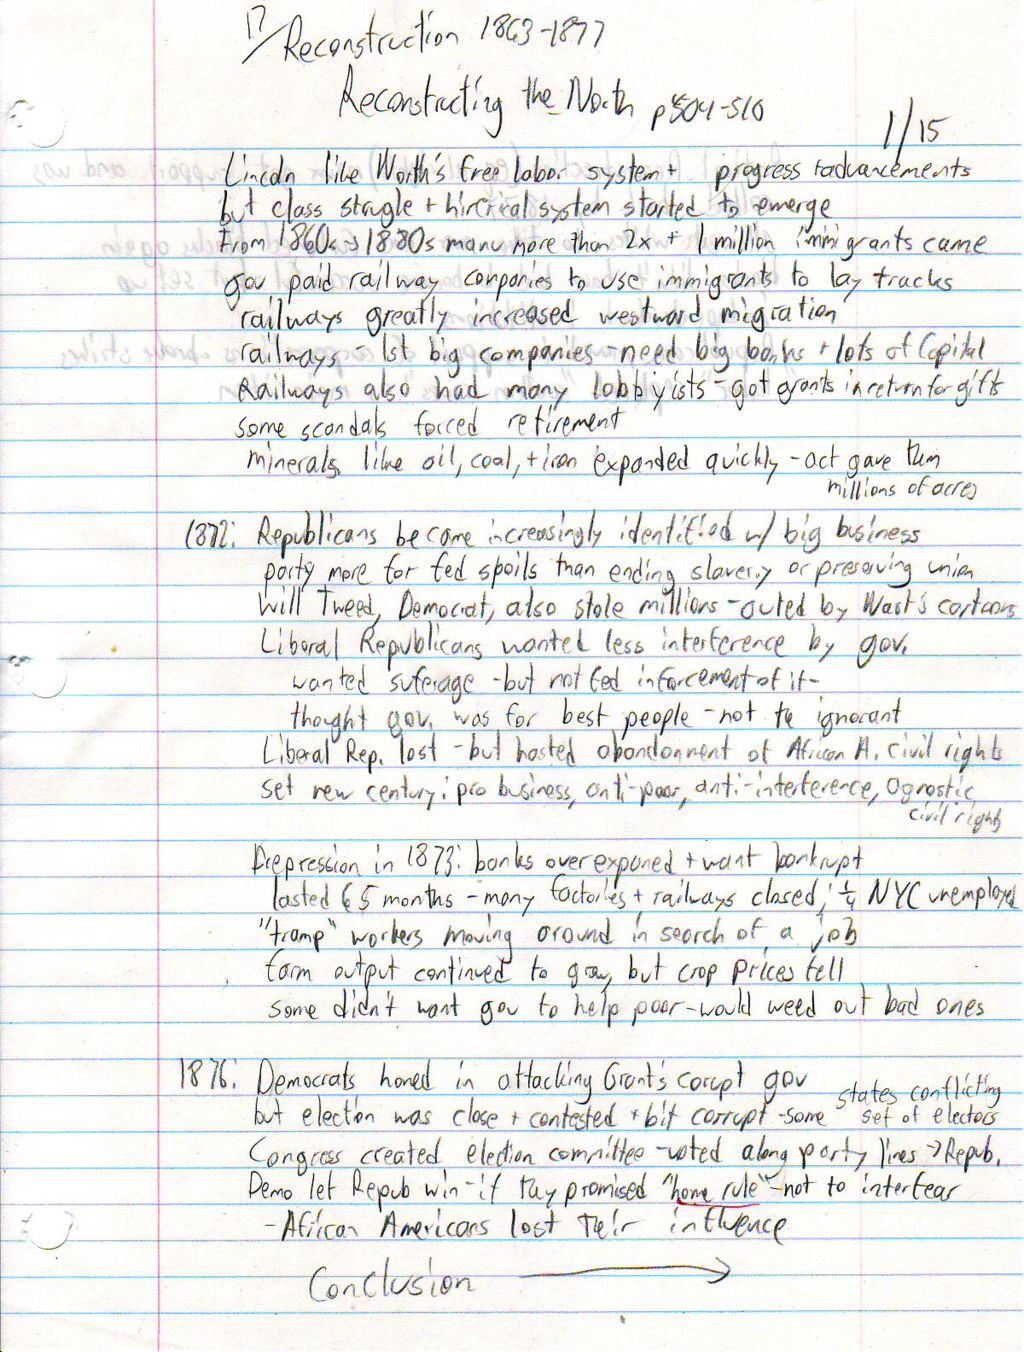 17/ Reconstruction 1863-1877
Reconstructing the North p504-510
1/15
Lincoln like North's free labor system + progress + advancements
but class strugle + system started to emerge
from 1860s → 1880s manu more than 2x + 1 million immigrants came
gov paid railway companies to use immigrants to lay tracks
railways greatly increased westward migration
railways - 1st big companies - need big banks + lots of Capital
Railways also had many lobbyists - got grants in return for gifts
some scandals forced retirement
minerals like oil, coal, + iron expanded quickly - act gave them
millions of acres
1872: Republicans became increasingly identified w/ big business
party more for fed spoils than ending slavery or preserving union
Will Tweed, Democrat, also stole millions - outed by Nast's cartoons
Liberal Republicans wanted less interference by gov.
wanted suferage - but not fed inforcement of it -
thought gov. was for best people - not the ignorant
Liberal Rep. lost - but hasted abandonment of African A. civil rights
set new century: pro business, anti-poor, anti-interference, agnostic
civil rights
Depression in 1873: banks over expaned + want bankrupt
lasted 65 months - many factories + railways closed; 1/4 NYC unemployed
"tramp" workers moving around in search of a job
farm output continued to grow, but crop prices fell
some didn't want gov to help poor - would weed out bad ones
1876: Democrats honed in attacking Grant's corupt gov
but election was close + contested + bit corrupt - some states conflicting
set of electors
Congress created election committee - voted along party lines → Repub.
Demo let Repub win - if they promised "home rule" - not to interfear
- African Americans lost their influence
Conclusion →